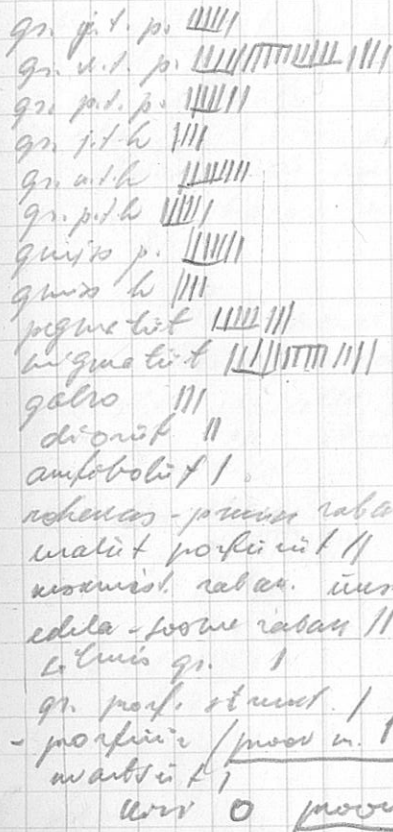 gr. j.t. p.
gr. u.t. p.
gr. p.t. p.
gr. j.t.h
gr. u.t.h
gr. p.t.h
gneiss p.
gneiss h
pegmatiit
migmatiit
gabro
dioriit
amfiboliit
rohekas - raba
uraliit porfüriit
rabak.
edela-soome rabak
gr.
gr. porf. strukt.
- porfüür proov n. 1
kvartsiit
kivi 0 proov